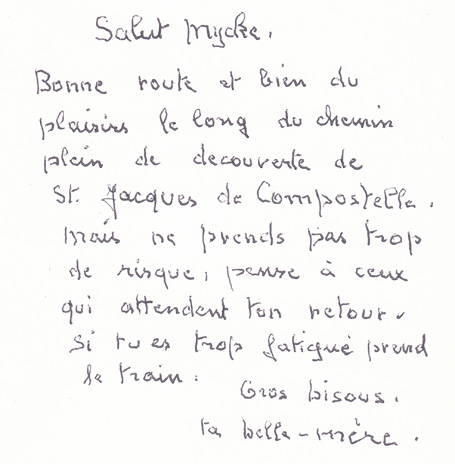 Salut Mycke,
Bonne route et bien du
plaisirs le long du chemin
plein de decouverte de
St. Jacques de Compostella.
mais ne prends pas trop
de risque, pense à ceux
qui attendent ton retour.
Si tu es trop fatigué prend
le train.
Gros bisous.
ta belle-mère.